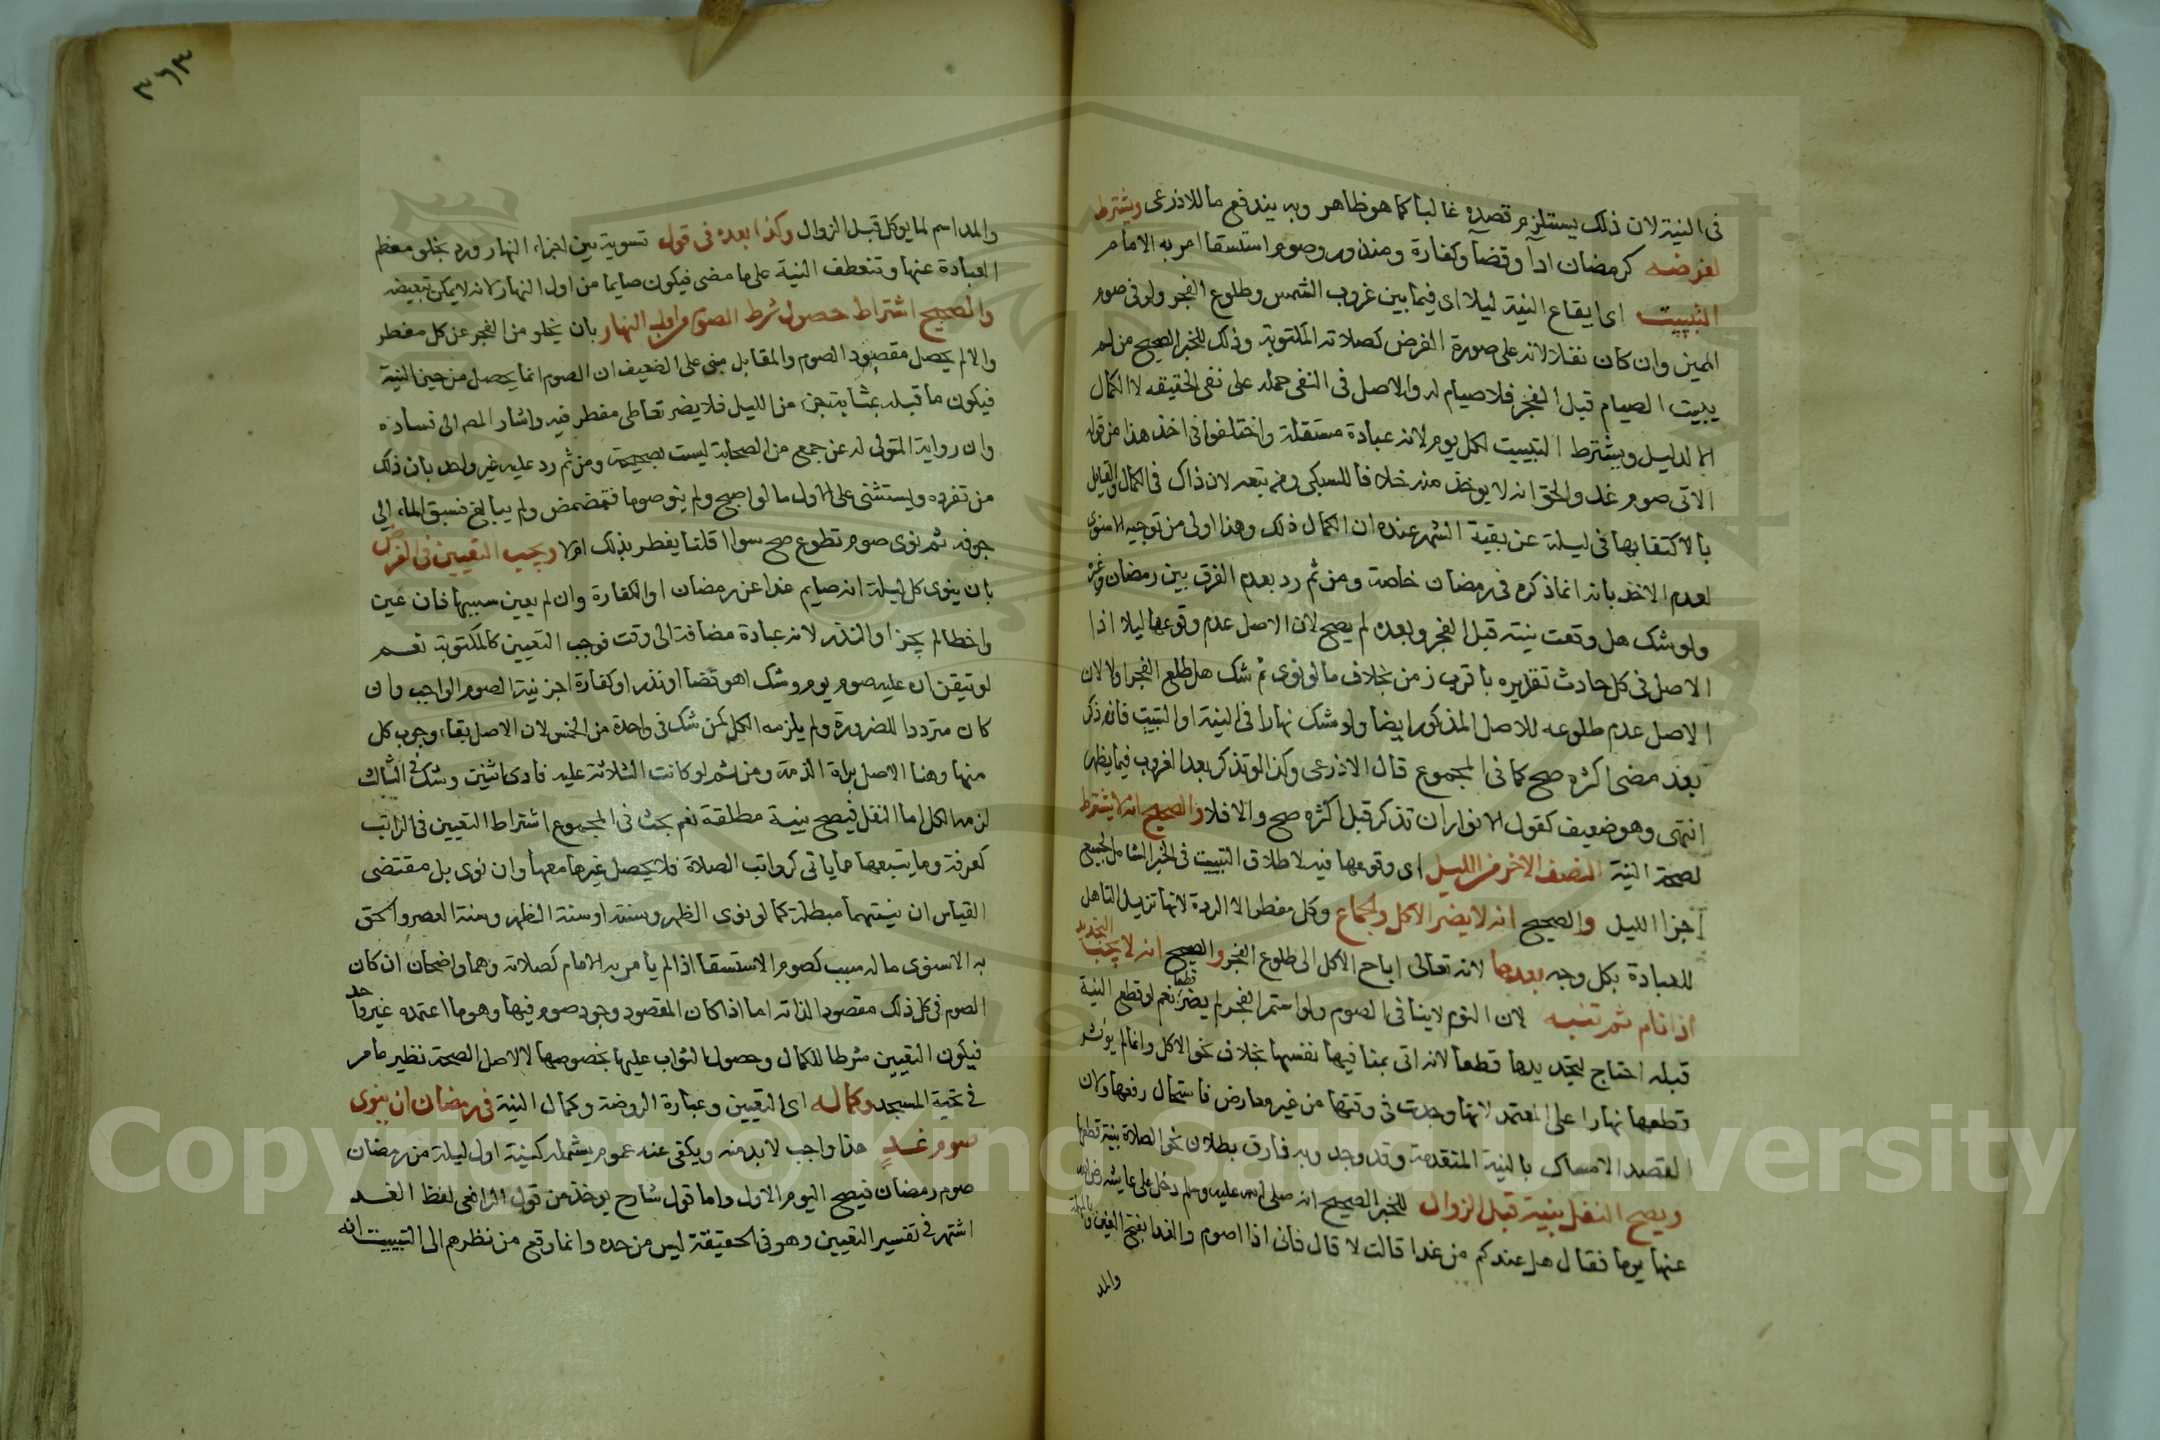 في النية لان ذلك يستلزم قصده غالبا كما هو ظاهر وبه يندفع ما للاذرعي ويشترط
لفرضه كرمضان ادآ وقضآ وكفارة ومنذور وصوم استسقا امر به الامام
التبييت اى ايقاع النية ليلا اى فيما بين غروب الشمس وطلوع الفجر ولو في صوم
المميز وان كان نفلا لانه على صورة الفرض كصلاته المكتوبة وذلك للخبر الصحيح من لم
يبيت الصيام قبل الفجر فلا صيام له والاصل في النفى حمله على نفى الحقيقه لا الكمال
الا لدليل ويشترط التبييت لكل يوم لانه عبادة مستقلة واختلفوا في اخذ هذا من قوله
الاتى صوم غد والحق انه لا يوخذ منه خلافا للسبكى ومن تبعه لان ذاك في الكمال والقايل
بالاكتفا بها في ليلة عن بقية الشهر عنده ان الكمال ذلك وهذا اولى من توجيه الاسنوى
لعدم الاخذ بانه انما ذكره في رمضان خاصة ومن ثم رد بعدم الفرق بين رمضان وغيره
ولو شك هل وقعت نيته قبل الفجر وبعده لم يصح لان الاصل عدم وقوعها ليلا اذا
الاصل في كل حادث تقديره باقرب زمن بخلاف ما لو نوى ثم شك هل طلع الفجر اولا لان
الاصل عدم طلوعه للاصل المذكور ايضا ولو شك نهارا في النية او التبييت فان ذكر
بعد مضى اكثره صح كما في المجموع قال الاذرعى وكذا لو تذكر بعد الغروب فيما يظهر
انتهى وهو ضعيف كقول الانوار ان تذكر قبل اكثره صح والا فلا والصحيح انه لا يشترط
لصحة النية النصف الاخر من الليل اى وقوعها فيه لاطلاق التبييت في الخبر الشامل لجميع
اجزا الليل والصحيح انه لا يضر الاكل والجماع وكل مفطر الا الردة لانها تزيل التاهل
للعبادة بكل وجه بعدها لانه تعالى اباح الاكل الى طلوع الفجر والصحيح انه لا يجب التجديد
اذا نام ثم تنبه لان النوم لا ينافى الصوم ولو استمر الفجر لم يضر قطعا نعم لو قطع النية
قبله احتاج لتجديدها قطعا لانه اتى بمنافيها نفسها بخلاف نحو الاكل وانما لم يوثر
قطعها نهارا على المعتمد لانها وجدت في وقتها من غير معارض فاستحال رفعها ولان
القصد الامساك بالنية المتقدمة وقد وجد وبه فارق بطلان نحو الصلاة بنية قطعها
ويصح النفل بنيته قبل الزوال للخبر الصحيح انه صلى الله عليه وسلم دخل على عايشة رضى الله
عنها يوما فقال هل عندكم من غدا قالت لا قال فانى اذا اصوم والغدا بفتح الغين وبالمهملة
والمد
٣٦٣
والمد اسم لما يوكل قبل الزوال وكذا بعده في قول تسوية بين اجزاء النهار ورد بخلو معظم
العبادة عنها وتنعطف النية على ما مضى فيكون صايما من اول النهار لانه لا يمكن تبعيضه
والصحيح اشتراط حصول شرط الصوم من اول النهار بان يخلو من الفجر عن كل مفطر
والا لم يحصل مقصود الصوم والمقابل مبنى على الضعيف ان الصوم انما يحصل من حين النية
فيكون ما قبله بمثابة جزء من الليل فلا يضر تعاطى مفطر فيه واشار المص الى فساده
وان رواية المتولى له عن جمع من الصحابة ليست بصحيحة ومن ثم رد عليه غير واحد بان ذلك
من تفرده ويستثنى على الاول ما لو اصبح ولم ينو صوما فتمضمض ولم يبالغ فسبق الماء الى
جوفه ثم نوى صوم تطوع صح سوا اقلنا يفطر بذلك ام لا ويجب التعيين في الفرض
بان ينوى كل ليلة انه صايم غدا عن رمضان او الكفارة وان لم يعين سببها فان عين
واخطا لم يجز او النذر لانه عبادة مضافة الى وقت فوجب التعيين كالمكتوبة نعم
لو تيقن ان عليه صوم يوم وشك اهو قضا او نذر او كفارة اجز نية الصوم الواجب وان
كان مترددا للضرورة ولم يلزمه الكل كمن شك في واحدة من الخمس لان الاصل بقاء وجوب كل
منها وهنا الاصل براة الذمة ومن ثم لو كانت الثلاثة عليه فادى اثنين وشك في الثالث
لزمه الكل اما النفل فيصح بنية مطلقة نعم بحث في المجموع اشتراط التعيين في الراتب
كعرفة وما يتبعها مما ياتى كرواتب الصلاة فلا يحصل غيرها معها وان نوى بل مقتضى
القياس ان نيتهما مبطلة كما لو نوى الظهر وسنته او سنة الظهر وسنة العصر والحق
به الاسنوى ما له سبب كصوم الاستسقا اذا لم يامر به الامام كصلاته وهما واضحان ان كان
الصوم في كل ذلك مقصود الذاته اما اذا كان المقصود وجود صوم فيها وهو ما اعتمده غير واحد
فيكون التعيين شرطا للكمال وحصول الثواب عليها بخصوصها لا لاصل الصحة نظير ما مر
في تحية المسجد وكماله اى التعيين وعبارة الروضة وكمال النية في رمضان ان ينوى
صوم غدٍ هذا واجب لا بد منه ويكفى عنه عموم يشمله كنية اول ليلة من رمضان
صوم رمضان فيصح اليوم الاول واما قول شارح يوخذ من قول الرافعى لفظ الغد
اشتهر في تفسير التعيين وهو في الحقيقة ليس من حده وانما وقع من نظرهم الى التبييت انه
Copyright © King Saud University